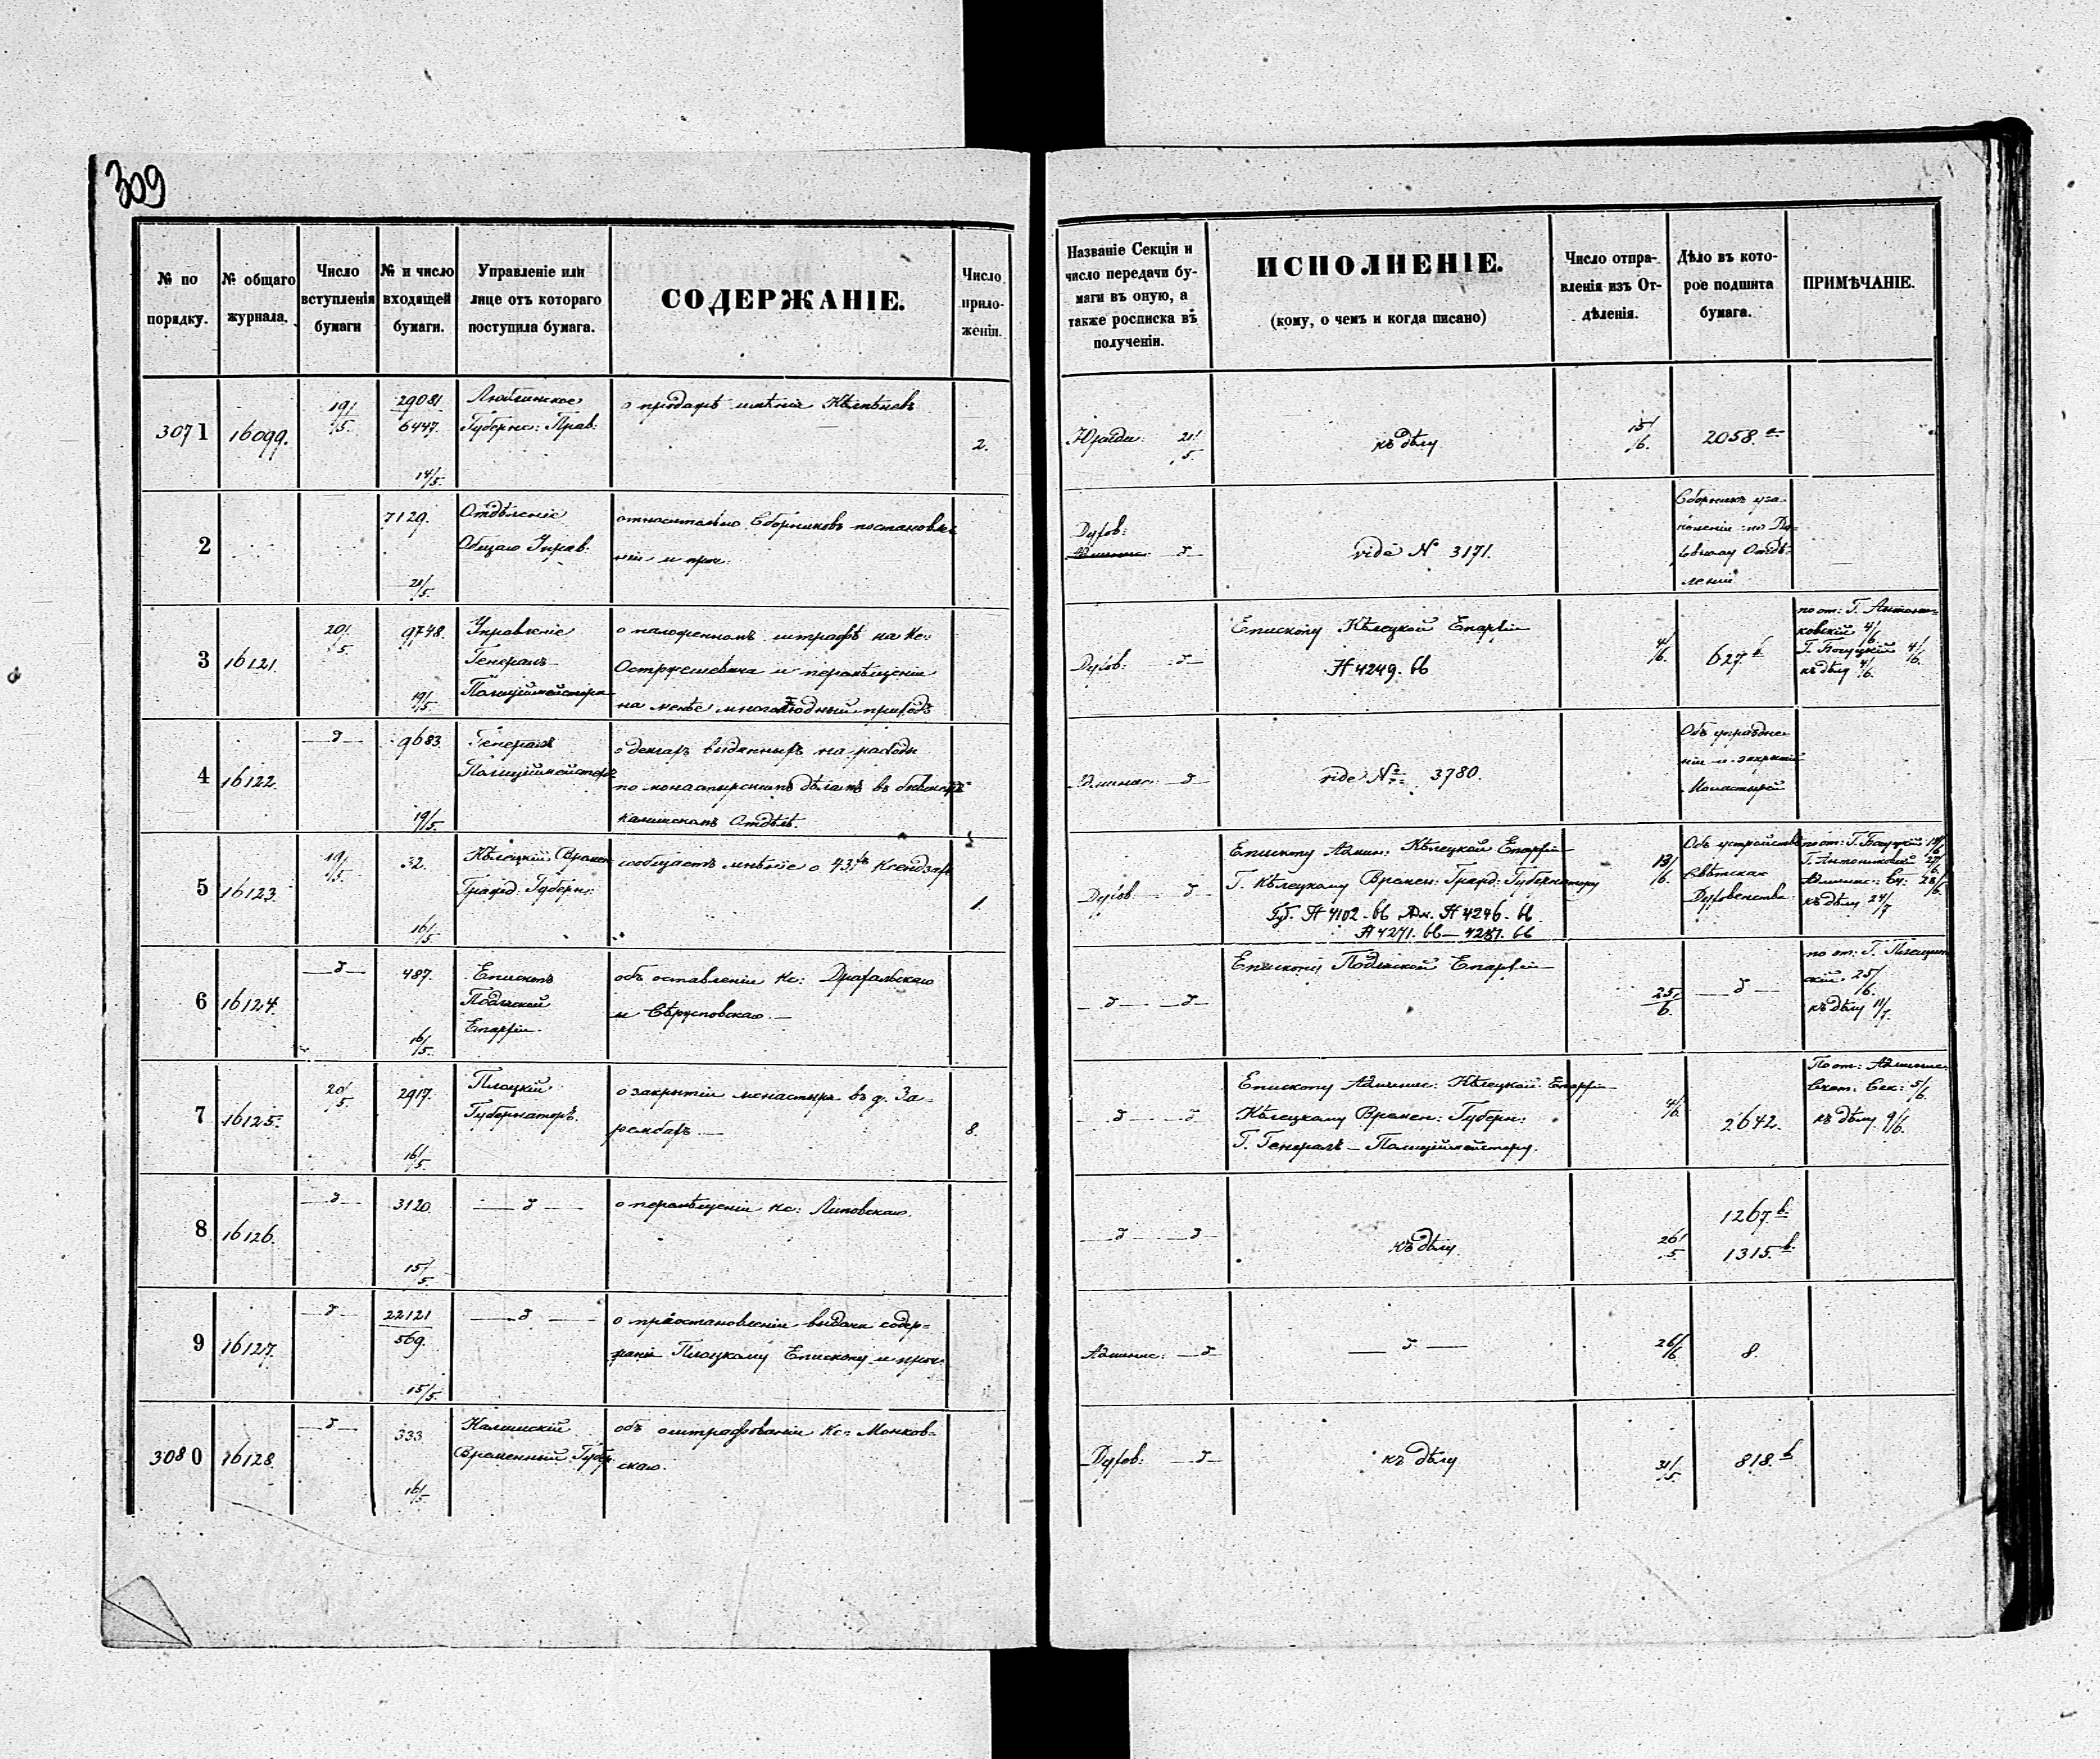 309
№ по порядку.
№ общаго журнала.
Число вступленія бумаги
№ и число входящей бумаги.
Управленіе или лице отъ котораго поступила бумага.
СОДЕРЖАНІЕ.
Число приложеній.
Названіе Секціи и число передачи бумаги въ оную, а также росписка въ полученіи.
ИСПОЛНЕНІЕ.
(кому, о чемъ и когда писано)
Число отправленія изъ Отдѣленія.
Дѣло въ которое подшита бумага.
ПРИМѢЧАНІЕ.
3071 16099. 19/5. 29081
6447.
14/5.
Люблинское
Губернс: Прав:
о продажѣ имѣнія
2.
Юриди: 21/5.
къ дѣлу
15/6.
2058.
2 7129.
21/5.
Отдѣленіе
Общаго Управ:
относительно Сборниковъ постановле-
ній и проч.
Духов: д
vide N 3171.
Сборникъ
по Ду-
ховному Отдѣ-
ленію
3 16121. 20/5. 9748.
19/5.
Управленіе
Генералъ-
Полиціймейстера
о наложенномъ штрафѣ на Кс:
и перемѣщеніи
на менѣе многолюдный приходъ
Духов: д
Епископу Кѣлецкой Епархіи
N 4249. bb
4/6.
627. b
по от:
4/6.
Г. 4/6.
къ дѣлу 4/6.
4 16122. д 9683.
19/5.
Генералъ
Полиціймейстеръ
о деньгахъ выданныхъ на расходы
по монастырскимъ дѣламъ въ бывшемъ
Калишскомъ Отдѣлѣ.
Админис: д
vide N 3780.
Объ упраздне-
ніи и закрытіи
Монастырей
5 16123. 19/5. 32.
16/5
Кѣлецкій Времен
Гражд: Губерн:
сообщаетъ мнѣніе о 43.хъ Ксендзахъ
1.
Духов. д
Епископу Админ: Кѣлецкой Епархіи
Г. Кѣлецкому Времен: Гражд: Губернатору
Губ. N 4102. bb Ад. N 4246. bb
N 4271. bb
13/6.
Объ устройствѣ
Свѣтскаго
Духовенства.
по от: Г.
къ дѣлу 24/7
6 16124. д 487.
16/5.
Епископъ
Подляской
Епархіи
объ оставленіи Кс:
и
д д
Епископу Подляской Епархіи
25/6.
д
по от: Г.
25/6.
къ дѣлу 11/7.
7 16125. 20/5. 2917.
16/5.
Плоцкій
Губернаторъ.
о закрытіи монастыря въ д. За-
рембахъ
8.
д д
Епископу Админис: Кѣлецкой Епархіи
Кѣлецкому Времен: Губерн:
Г. Генералъ-Полиціймейстеру.
4/6
2642.
По от: Админис.
5/6.
къ дѣлу 9/6.
8 16126. д 3120.
15/5.
д
о перемѣщеніи Кс: Липовскаго.
д д
къ дѣлу.
26/5
1267. b
1315. b
9 16127. д 22121
569.
15/5.
д
о пріостановленіи выдачи содер-
жанія Плоцкому Епископу и проч:
Админис: д
д
26/6
8.
3080 16128. д 333
16/5
Калишскій
Временный Губер.
объ оштрафованіи Кс: Монков-
скаго.
Духов: д
къ дѣлу
31/5.
818. b